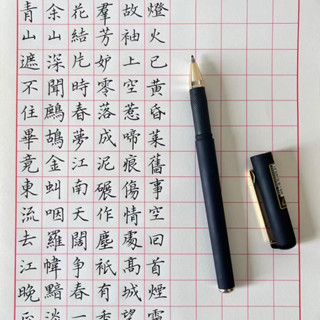 燈火已黃昏萊舊事空回首煙靄
故袖上空惹啼痕傷情處高城望
羣芳妒零落成泥碾作塵衹有香
花結片時春夢江南天闊爭春一
余山深聞鷓鴣金虯咽羅幃黯淡
青山遮不住畢竟東流去江晚正